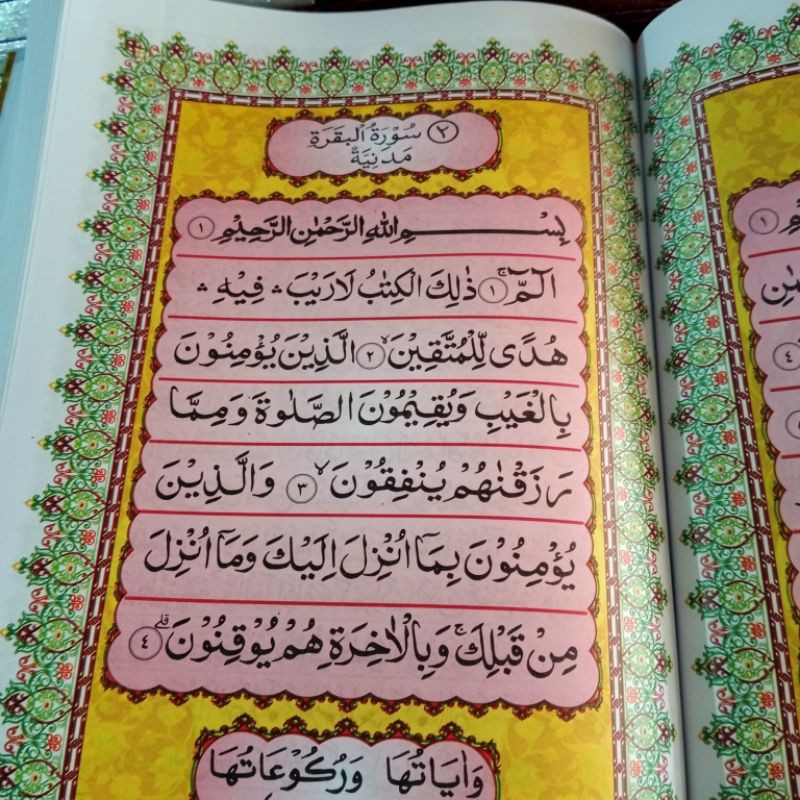 ٢ سُوْرَةُ الْبَقَرَةِ
مَدَنِيَّةٌ
بِسْــــــــمِ اللهِ الرَّحْمٰنِ الرَّحِيْمِ ١
الٓمّٓ ۚ ١ ذٰلِكَ الْكِتٰبُ لَا رَيْبَ ۛ فِيْهِ ۛ
هُدًى لِّلْمُتَّقِيْنَ ۙ ٢ الَّذِيْنَ يُؤْمِنُوْنَ
بِالْغَيْبِ وَيُقِيْمُوْنَ الصَّلٰوةَ وَمِمَّا
رَزَقْنٰهُمْ يُنْفِقُوْنَ ۙ ٣ وَالَّذِيْنَ
يُؤْمِنُوْنَ بِمَآ اُنْزِلَ اِلَيْكَ وَمَآ اُنْزِلَ
مِنْ قَبْلِكَ ۚ وَبِالْاٰخِرَةِ هُمْ يُوْقِنُوْنَ ۗ ٤
وَاٰيَاتُهَا وَرُكُوْعَاتُهَا